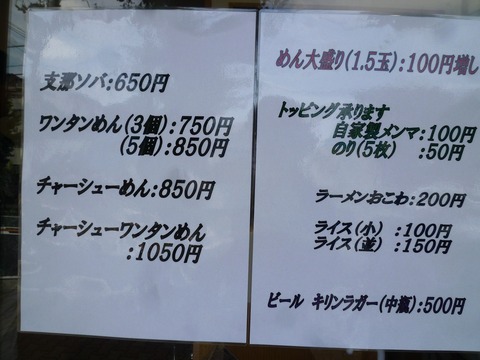 支那ソバ:650円
ワンタンめん(3個):750円
(5個):850円
チャーシューめん:850円
チャーシューワンタンめん
:1050円
めん大盛り(1.5玉):100円増し
トッピング承ります
自家製メンマ:100円
のり(5枚) :50円
ラーメンおこわ:200円
ライス(小) :100円
ライス(並) :150円
ビール キリンラガー(中瓶):500円